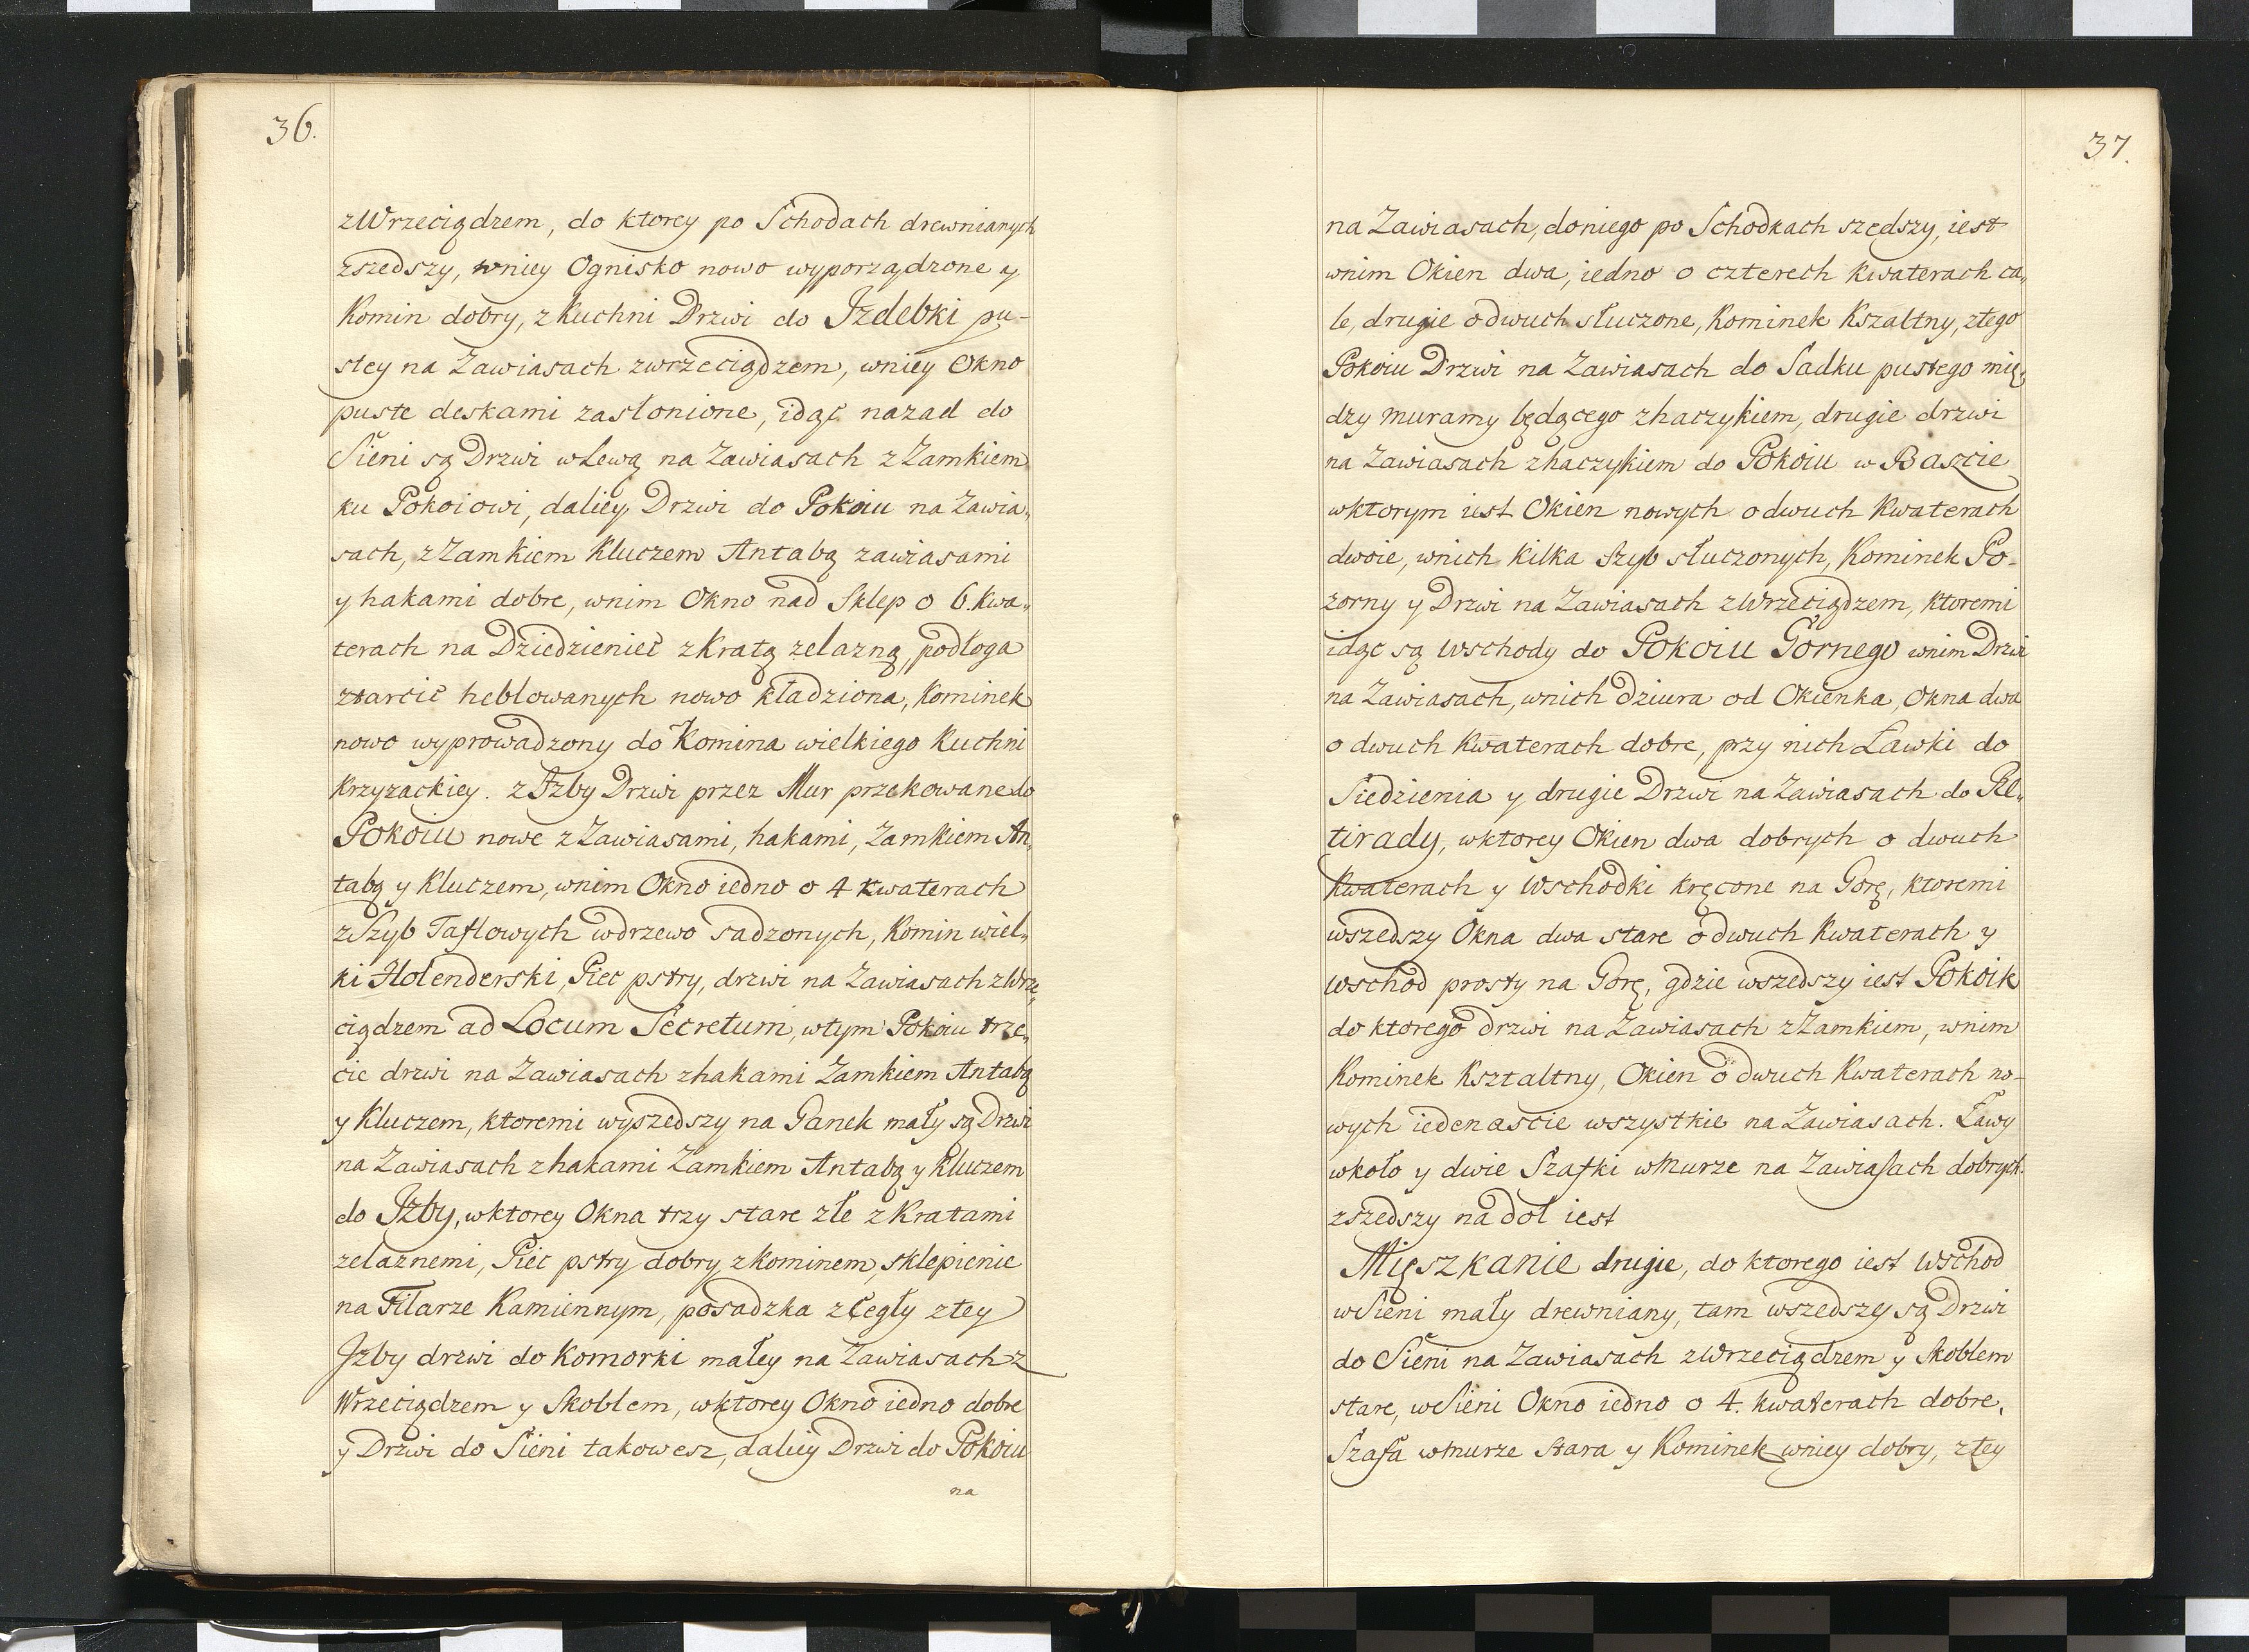 36.
zWrzeciądzem, do ktorey po Schodach drewnianych
zszedszy, wniey Ognisko nowo wyporządzone y
Komin dobry, z Kuchni Drzwi do Jzdebki pu-
stey na Zawiasach zwrzeciądzem, wniey Okno
puste deskami zasłonione, idąc nazad do
Sieni są Drzwi w Lewą na Zawiasach z Zamkiem
ku Pokoiowi, daliey Drzwi do Pokoiu na Zawia„
sach, z Zamkiem Kluczem Antabą zawiasami
y hakami dobre, wnim Okno nad Sklep o 6. kwa„
terach na Dziedzieniec z Kratą zelazną, podłoga
ztarcic heblowanych nowo kładziona, Kominek
nowo wyprowadzony do Komina wielkiego Kuchni
Krzyzackiey. z Jzby Drzwi przez Mur przekowane do
Pokoiu nowe z Zawiasami, hakami, Zamkiem An„
tabą y Kluczem, wnim Okno iedno o 4 kwaterach
z Szyb Taflowych wdrzewo sadzonych, Komin wiel„
ki Holenderski, Piec pstry, drzwi na Zawiasach zWrze„
ciądzem ad Locum Secretum, wtym Pokoiu trze„
cie drzwi na Zawiasach zhakami Zamkiem Antabą
y Kluczem, ktoremi wyszedszy na Ganek mały są Drzwi
na Zawiasach zhakami Zamkiem Antabą y Kluczem
do Jzby, wktorey Okna trzy stare złe z Kratami
zelaznemi, Piec pstry dobry z Kominem, sklepienie
na Filarze Kamiennym, posadzka z Cegły ztey
Jzby drzwi do Komorki małey na Zawiasach z
Wrzeciądzem y Skoblem, wktorey Okno iedno dobre
y Drzwi do Sieni takowesz, daliey Drzwi do Pokoiu
na
37.
na Zawiasach, doniego po Schodkach szedszy, iest
wnim Okien dwa, iedno o czterech kwaterach ca„
le, drugie o dwuch słuczone, Kominek Kszaltny, ztego
Pokoiu Drzwi na Zawiasach do Sadku pustego mię„
dzy muramy będącego zhaczykiem, drugie drzwi
na Zawiasach zhaczykiem do Pokoiu w Baszcie
wktorym iest Okien nowych o dwuch Kwaterach
dwoie, wnich kilka Szyb słuczonych, Kominek Po-
zorny y Drzwi na Zawiasach zWrzeciądzem, ktoremi
idąc są Wschody do Pokoiu Gornego wnim Drzwi
na Zawiasach, wnich dziura od Okienka, Okna dwa
o dwuch Kwaterach dobre, przy nich Ławki do
Siedzienia y drugie Drzwi na Zawiasach do Re„
tirady, wktorey Okien dwa dobrych o dwuch
Kwaterach y Wschodki kręcone na Gorę, ktoremi
wszedszy Okna dwa stare o dwuch Kwaterach y
Wschod prosty na Gorę, gdzie wszedszy iest Pokoik
do ktorego drzwi na Zawiasach z Zamkiem, wnim
Kominek Ksztaltny, Okien o dwuch Kwaterach no-
wych iedenascie wszystkie na Zawiasach. Ławy
wkoło y dwie Szafki wMurze na Zawiasach dobrych.
zszedszy na doł iest
Mięszkanie drugie, do ktorego iest Wschod
w Sieni mały drewniany, tam wszedszy są Drzwi
do Sieni na Zawiasach zWrzeciądzem y Skoblem
stare, w Sieni Okno iedno o 4. kwaterach dobre,
Szafa wMurze stara y Kominek wniey dobry, ztey